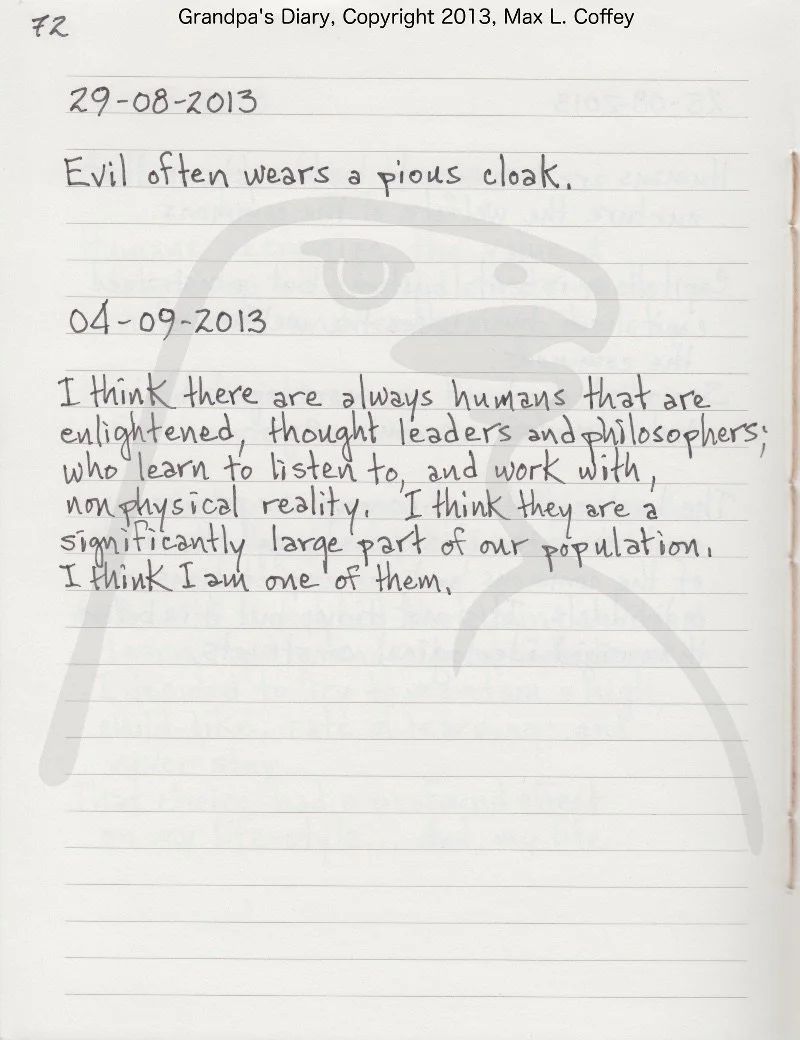 72
Grandpa's Diary, Copyright 2013, Max L. Coffey
29-08-2013
Evil often wears a pious cloak.
04-09-2013
I think there are always humans that are
enlightened, thought leaders and philosophers;
who learn to listen to, and work with,
nonphysical reality. I think they are a
significantly large part of our population.
I think I am one of them.